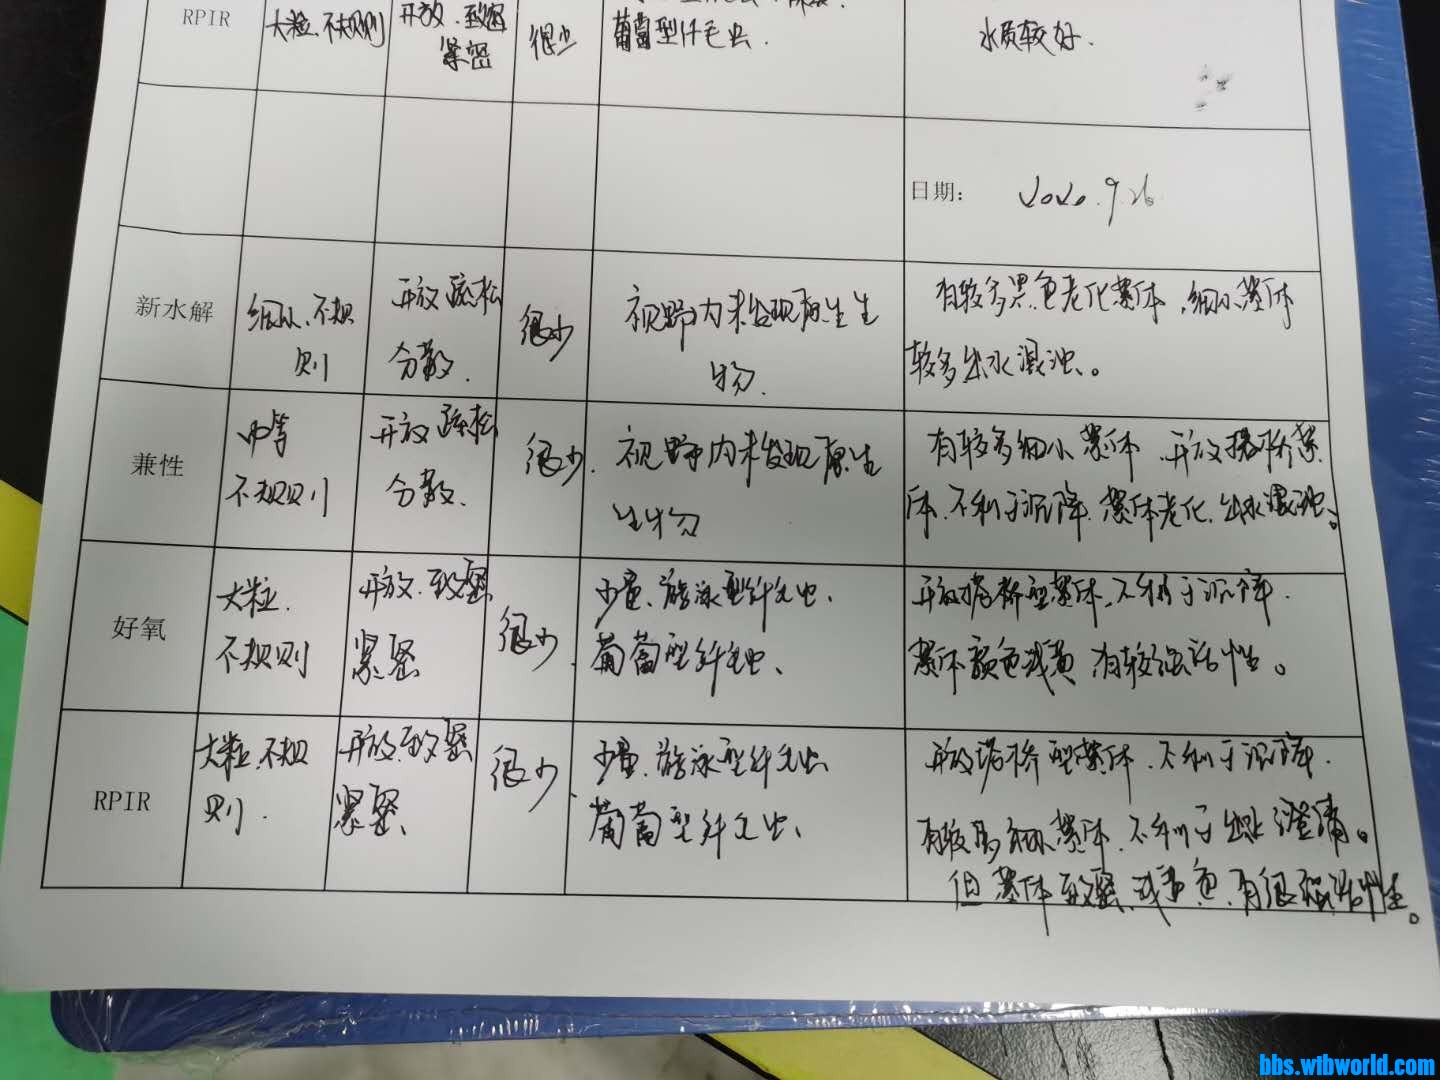 RPIR
大粒、不规则
开放、致密
紧密
很少
葡萄型纤毛虫.
水质较好.
日期: 2020.9.26
新水解
细小、不规
则
开放 疏松
分散.
很少
视野内未发现原生生
物.
有较多黑色老化菌体,细小菌体
较多出水混浊。
兼性
中等
不规则
开放 疏松
分散.
很少.
视野内未发现原生
生物
有较多细小菌体 开放搭桥菌
体.不利于沉降.菌体老化.出水混浊。
好氧
大粒.
不规则
开放.致密
紧密
很少.
少量、游泳型纤毛虫、
葡萄型纤毛虫、
开放搭桥型菌体.不利于沉降.
菌体颜色浅黄 有较强活性。
RPIR
大粒.不规
则.
开放.致密
紧密
很少.
少量、游泳型纤毛虫
葡萄型纤毛虫、
开放搭桥型菌体.不利于沉降.
有较多细小菌体.不利于出水澄清。
但菌体致密、浅黄色.有很强活性。
bbs.wtbworld.com